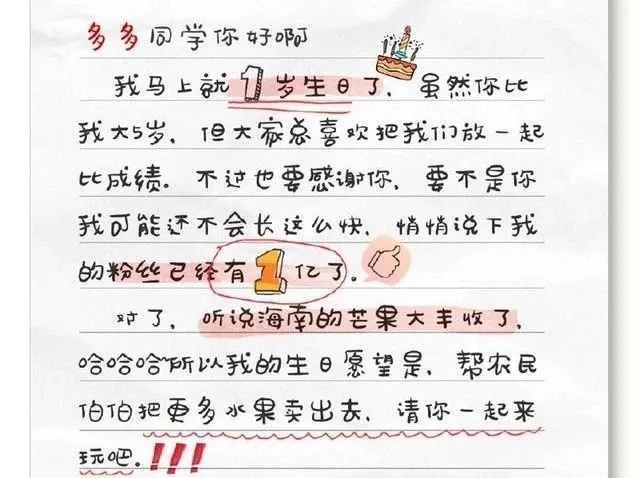 多多同学你好啊
我马上就1岁生日了，虽然你比
我大5岁，但大家总喜欢把我们放一起
比成绩。不过也要感谢你，要不是你
我可能还不会长这么快，悄悄说下我
的粉丝已经有1亿了。
对了，听说海南的芒果大丰收了，
哈哈哈所以我的生日愿望是，帮农民
伯伯把更多水果卖出去，请你一起来
玩吧。!!!